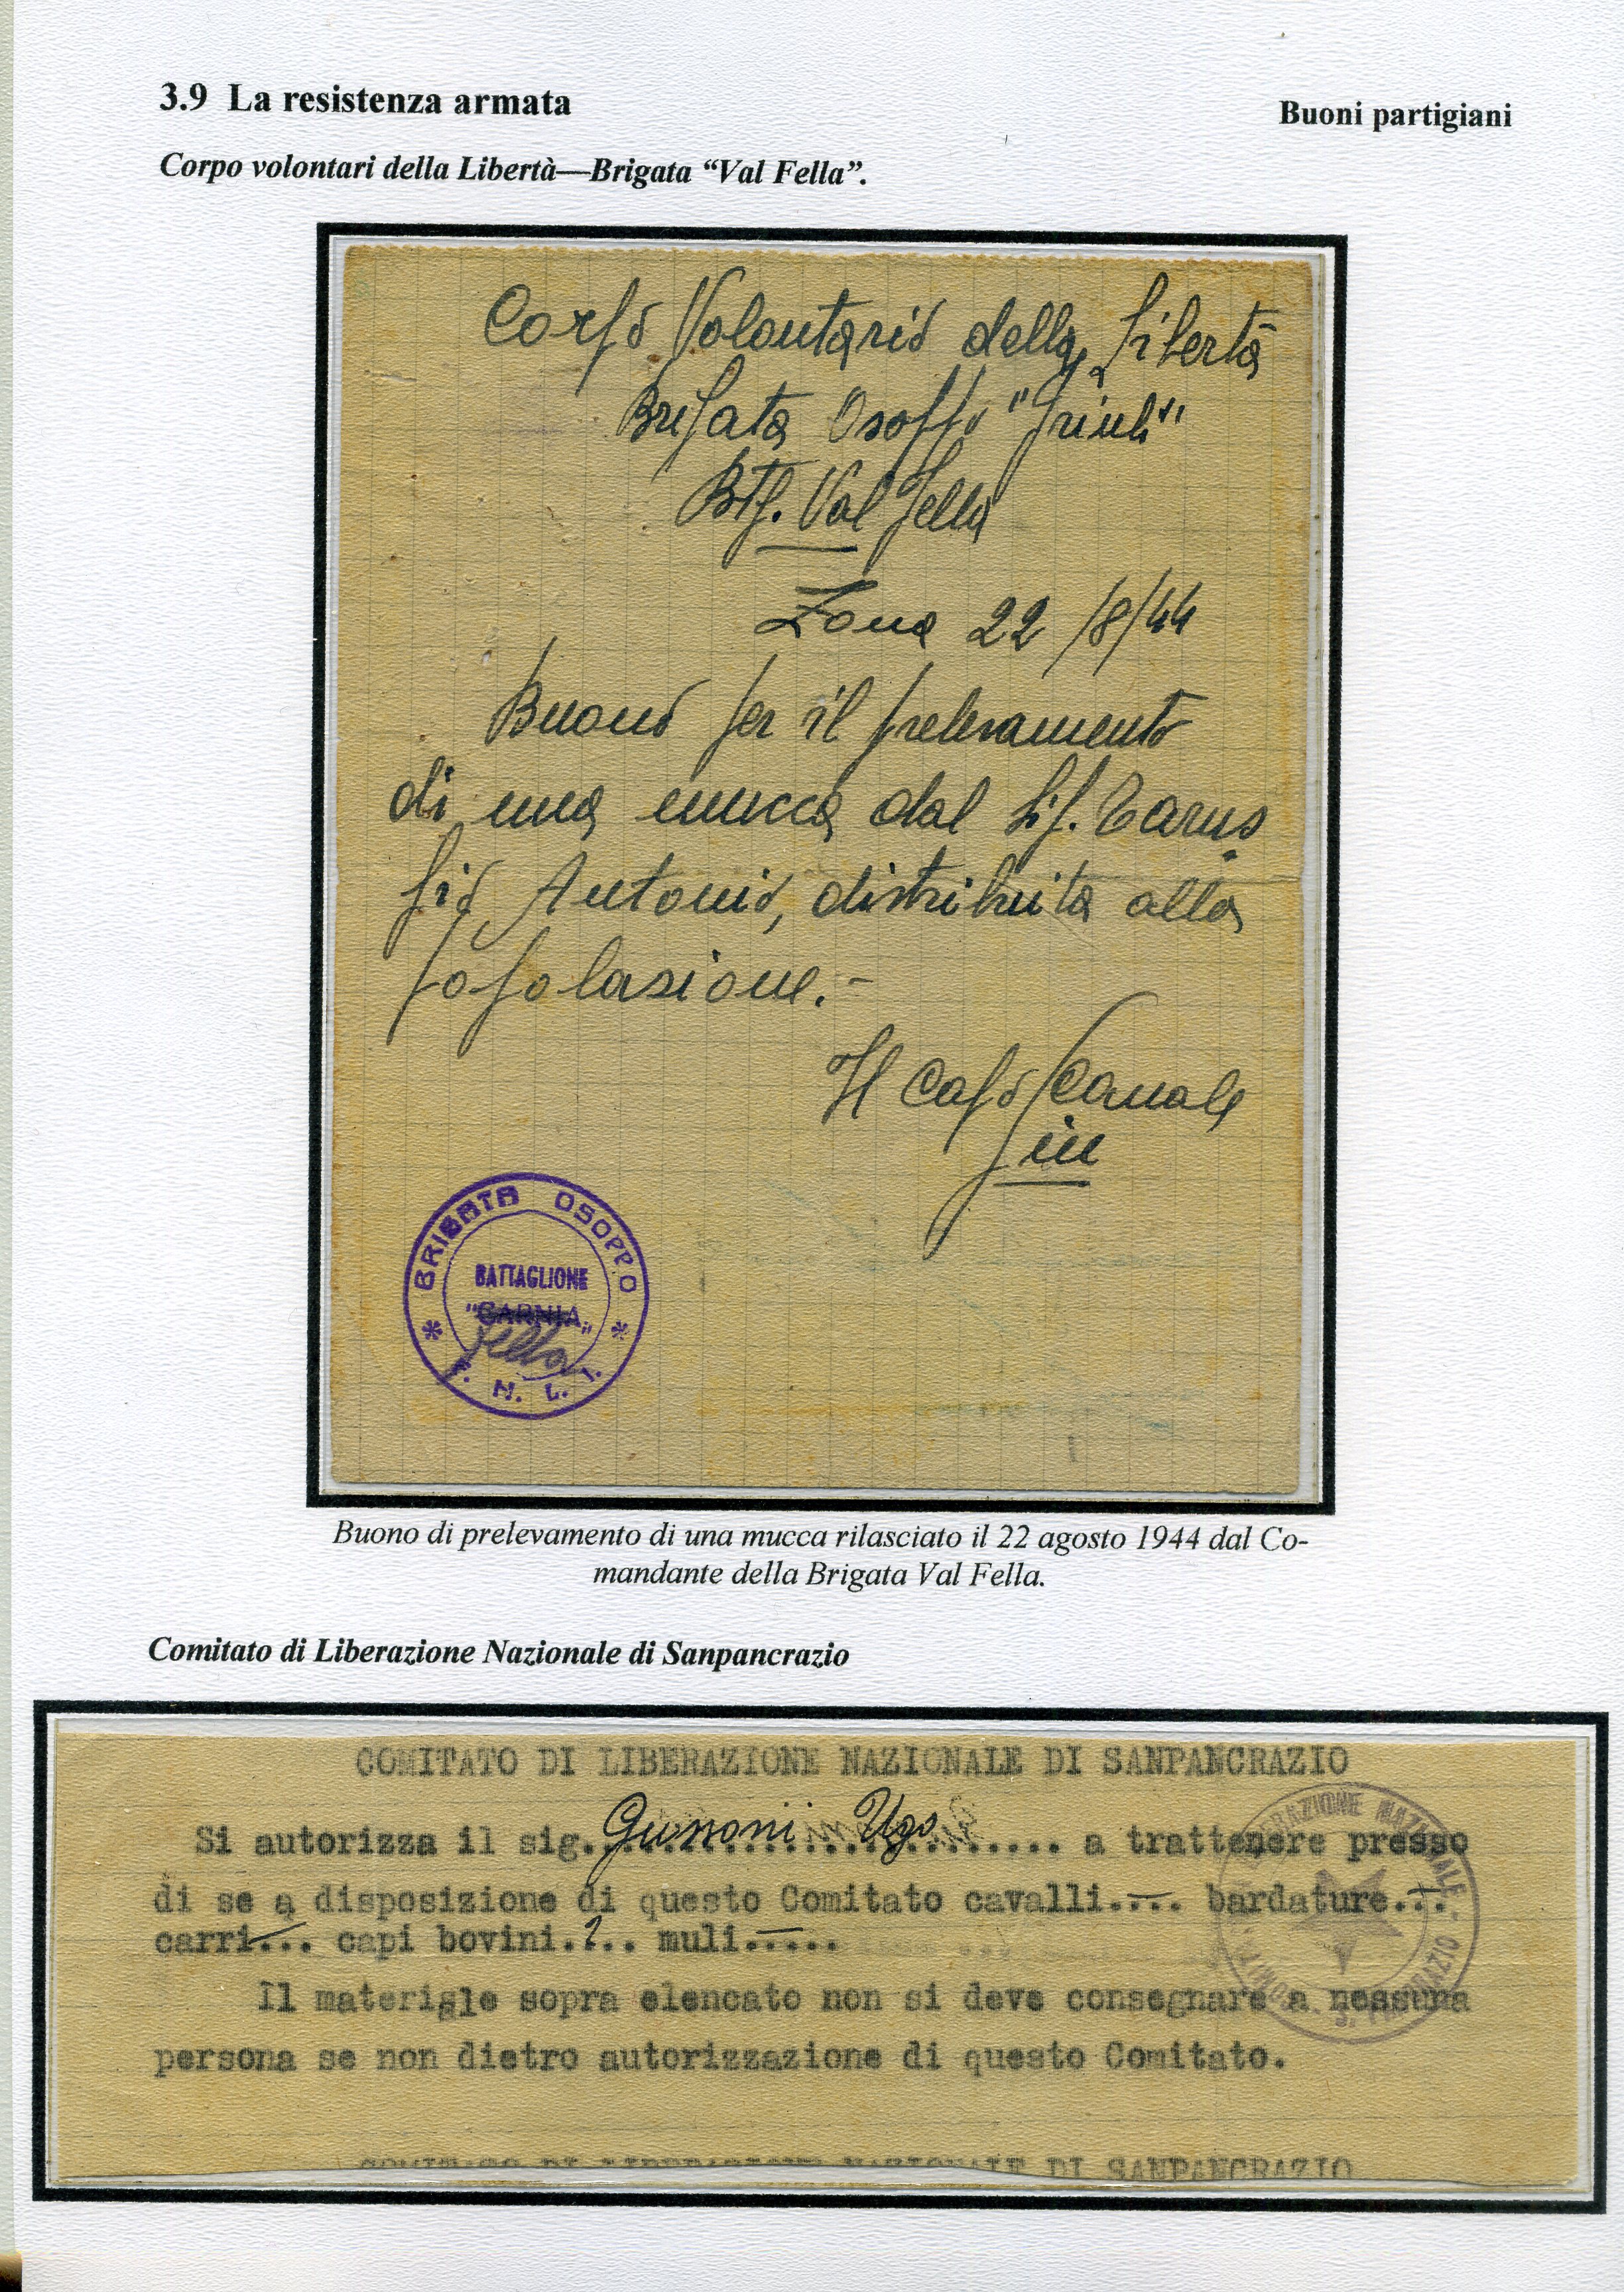 3.9 La resistenza armata
Buoni partigiani
Corpo volontari della Libertà—Brigata “Val Fella”.
Corpo Volontario della Libertà
Brigata Osoppo "Friuli"
Btg. Val Fella
Zona 22/8/44
Buono per il prelevamento
di una mucca dal Sig. Tarus
sio Antonio, distribuita alla
popolasione.-
Il Capo Canale
BRIGATA OSOPPO
BATTAGLIONE
"CARNIA"
Fella
F. N. L. I.
Buono di prelevamento di una mucca rilasciato il 22 agosto 1944 dal Co-
mandante della Brigata Val Fella.
Comitato di Liberazione Nazionale di Sanpancrazio
COMITATO DI LIBERAZIONE NAZIONALE DI SANPANCRAZIO
Si autorizza il sig. Ugo a trattenere presso
di se a disposizione di questo Comitato cavalli.... bardature...
carri... capi bovini.... muli.....
Il materisle sopra elencato non si deve consegnare a nessuna
persona se non dietro autorizzazione di questo Comitato.
COMITATO DI LIBERAZIONE NAZIONALE DI SANPANCRAZIO